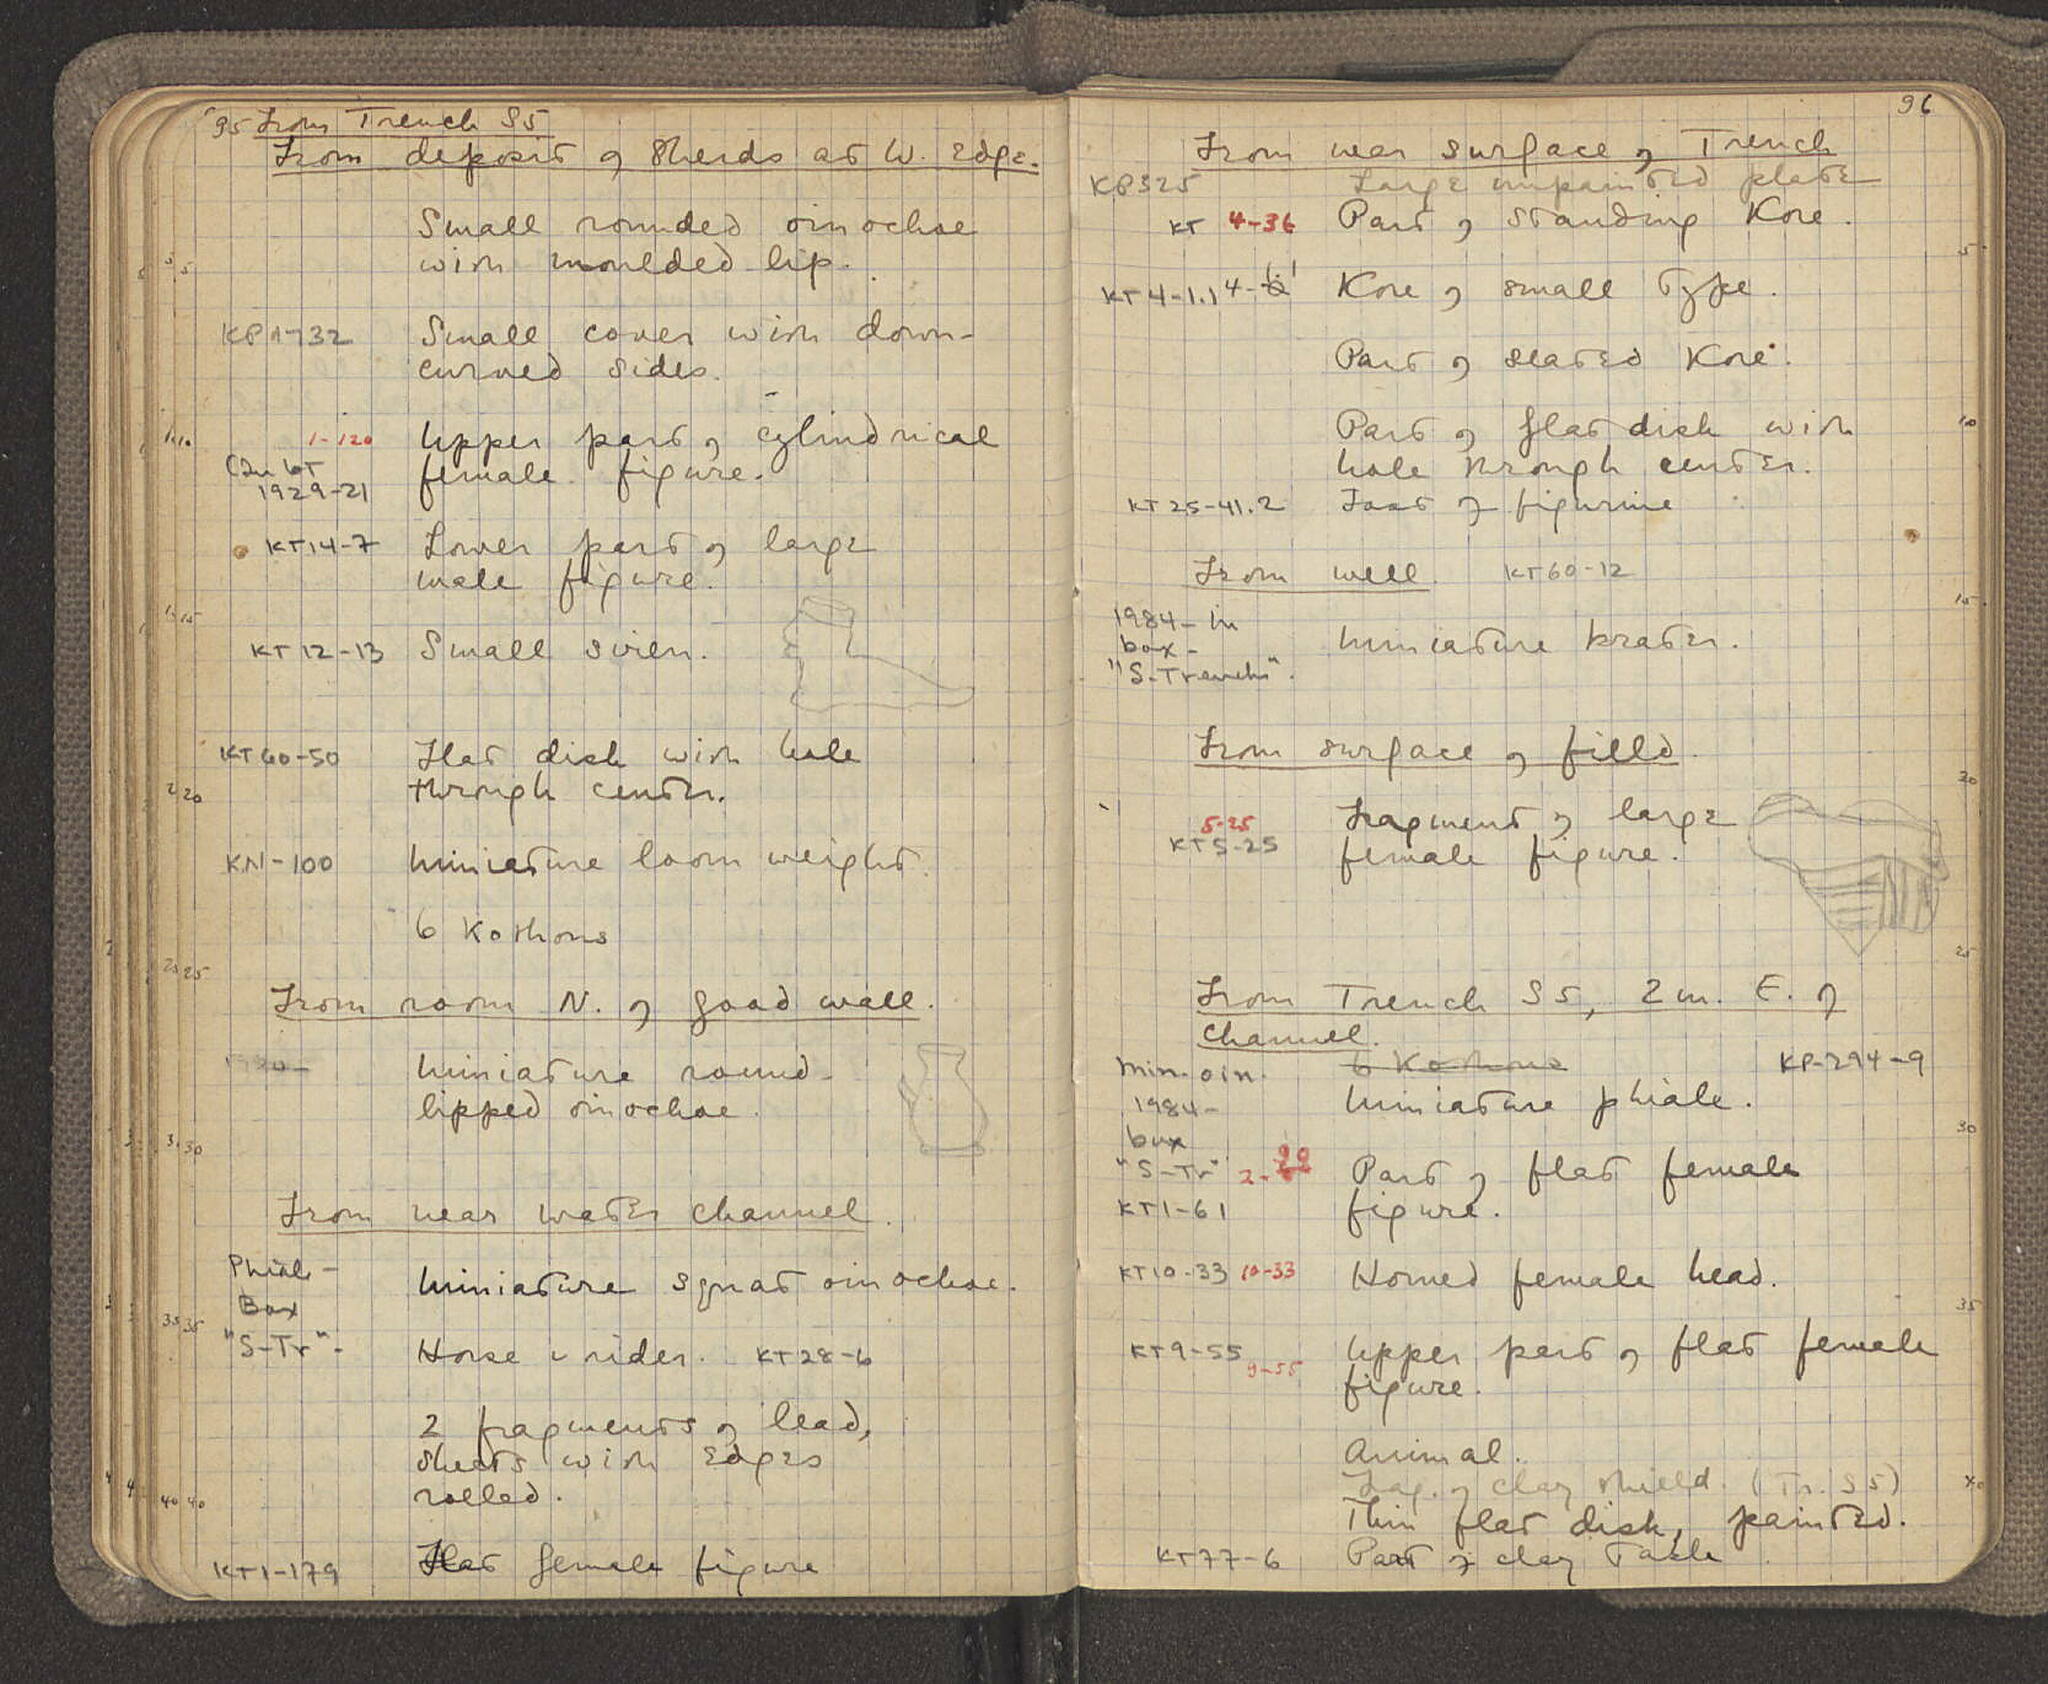 95 From Trench S5
From deposit of sherds at W. edge.
Small rounded oinochoe
with moulded lip.
KP 1732 Small cover with down-
curved sides.
1-120 Upper part of cylindrical
1929-21 female figure.
KT14-7 Lower part of large
male figure.
KT12-13 Small siren.
KT60-50 Flat disk with hole
through center.
KN-100 Miniature loom weight.
6 Kothons
From room N. of good wall.
Miniature round-
lipped oinochoe.
From near water channel.
Phiale-
Miniature squat oinochoe.
Box
"S-Tr"-
Horse & rider. KT28-6
2 fragments of lead,
sheets with edges
rolled.
KT1-179 Flat female figure
96
From near surface of Trench
KP325 Large unpainted plate
KT 4-36 Part of standing Kore.
KT4-1.1 Kore of small type.
Part of seated Kore.
Part of flat disk with
hole through center.
KT25-41.2 Foot of figurine
From well. KT60-12
1984-in
box-
"S-Trench".
Miniature krater.
From surface of field
5-25 Fragment of large
KT5-25 female figure.
From Trench S5, 2 m. E. of
channel.
Min. oin. 6 Kothons KP-294-9
1984- Miniature phiale.
box
"S-Tr" 2-90 Part of flat female
KT1-61 figure.
KT10-33 10-33 Horned female head.
KT9-55 9-55 Upper part of flat female
figure.
Animal.
Frag. of clay shield. (Tr. S5)
Thin flat disk, painted.
KT77-6 Part of clay table
5
10
15
20
25
30
35
40